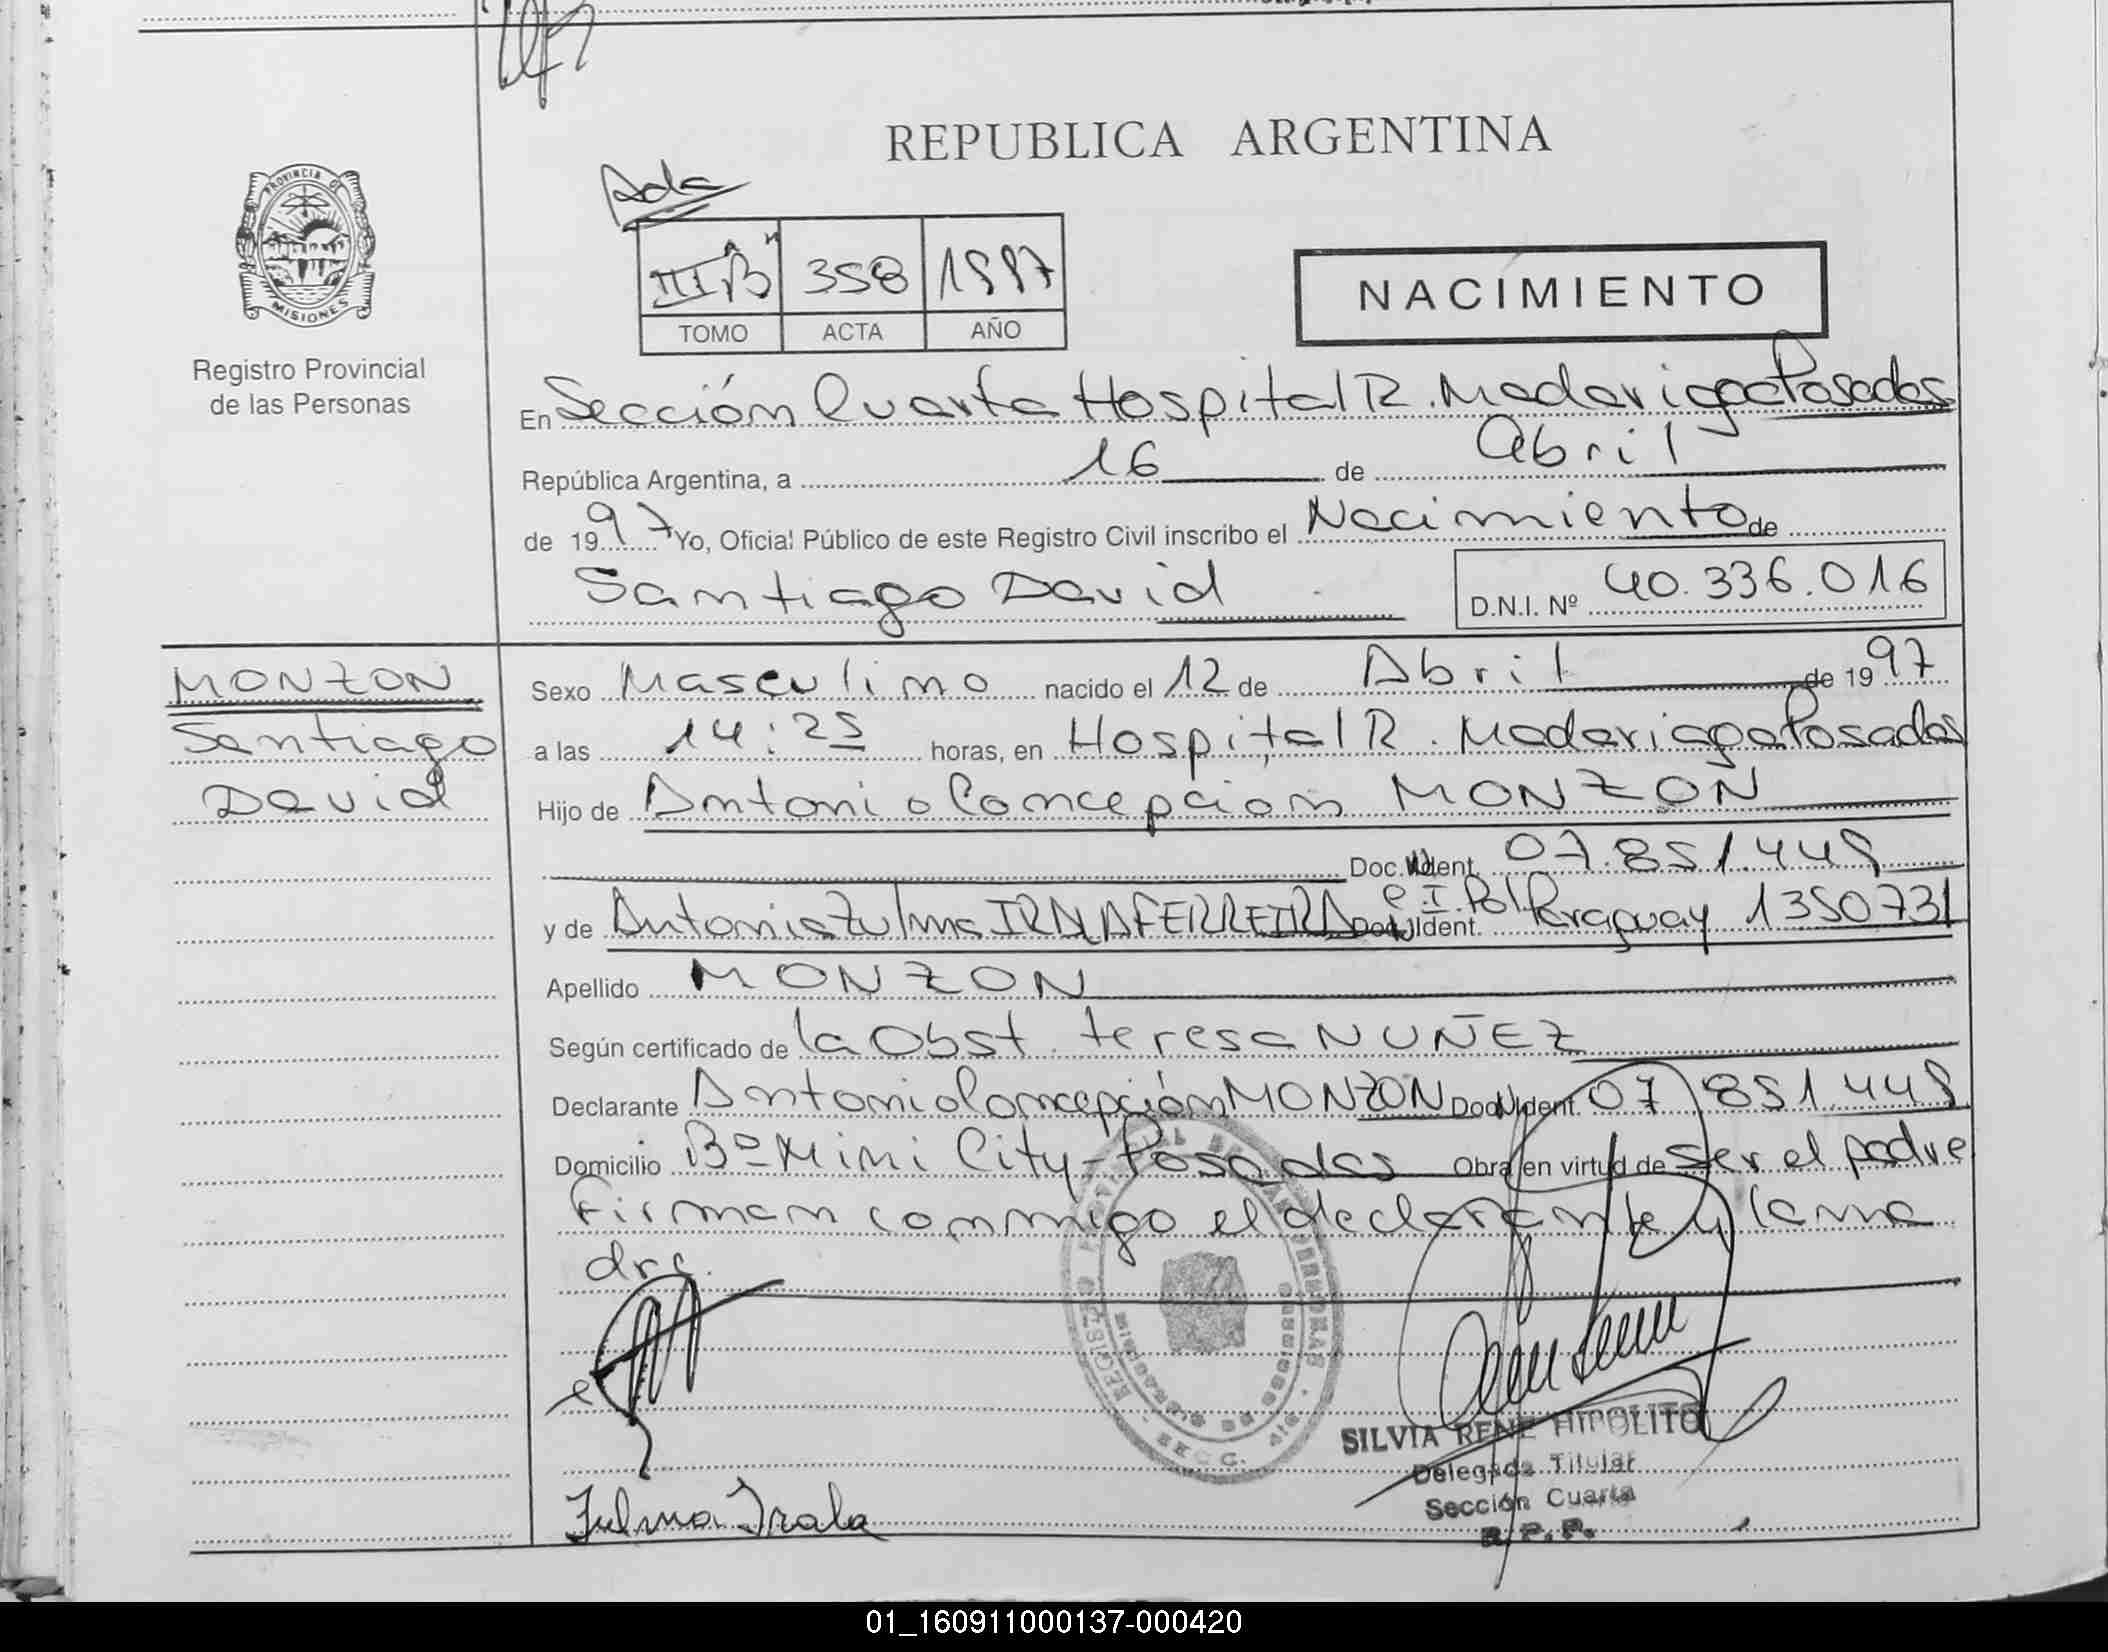 REPUBLICA ARGENTINA
PROVINCIA DE
MISIONES
Registro Provincial
de las Personas
III "B" 358 1997
TOMO ACTA AÑO
NACIMIENTO
En Sección Cuarta Hospital R. Madariaga Posadas
República Argentina, a 16 de Abril
de 1997 Yo, Oficial Público de este Registro Civil inscribo el Nacimiento de
Santiago David D.N.I. Nº 40.336.016
MONZON
Santiago
David
Sexo Masculino nacido el 12 de Abril de 1997
a las 14:25 horas, en Hospital R. Madariaga Posadas
Hijo de Antonio Concepción MONZON
Doc. Ident. 07.851.449
y de Antonia Zulma IRALA FERREIRA Doc. Ident. C.I. Pol. Paraguay 1350731
Apellido MONZON
Según certificado de la Obst. Teresa NUÑEZ
Declarante Antonio Concepción MONZON Doc. Ident. 07.851.449
Domicilio Bº Mini City - Posadas Obra en virtud de ser el padre
Firman conmigo el declarante y la ma
dre.
SILVIA RENE HIPOLITO
Delegada Titular
Sección Cuarta
R. P. P.
Zulma Irala
01_160911000137-000420